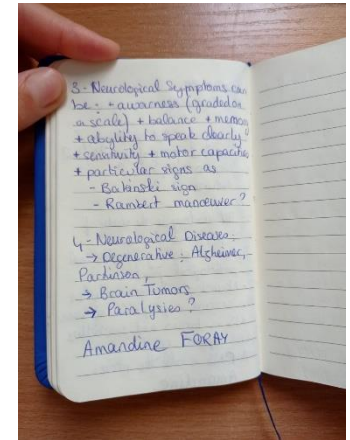 3 - Neurological Symptoms can
be : + awarness (graded on
a scale) + balance + memory
+ abylity to speak clearly
+ sensitivity + motor capacities
+ particular signs as
- Babinski sign
- Rambert manoeuver ?
4 - Neuralogical Diseases:
→ Degenerative : Alzheimer,
Parkinson,
→ Brain Tumors
→ Paralysies ?
Amandine FORAY